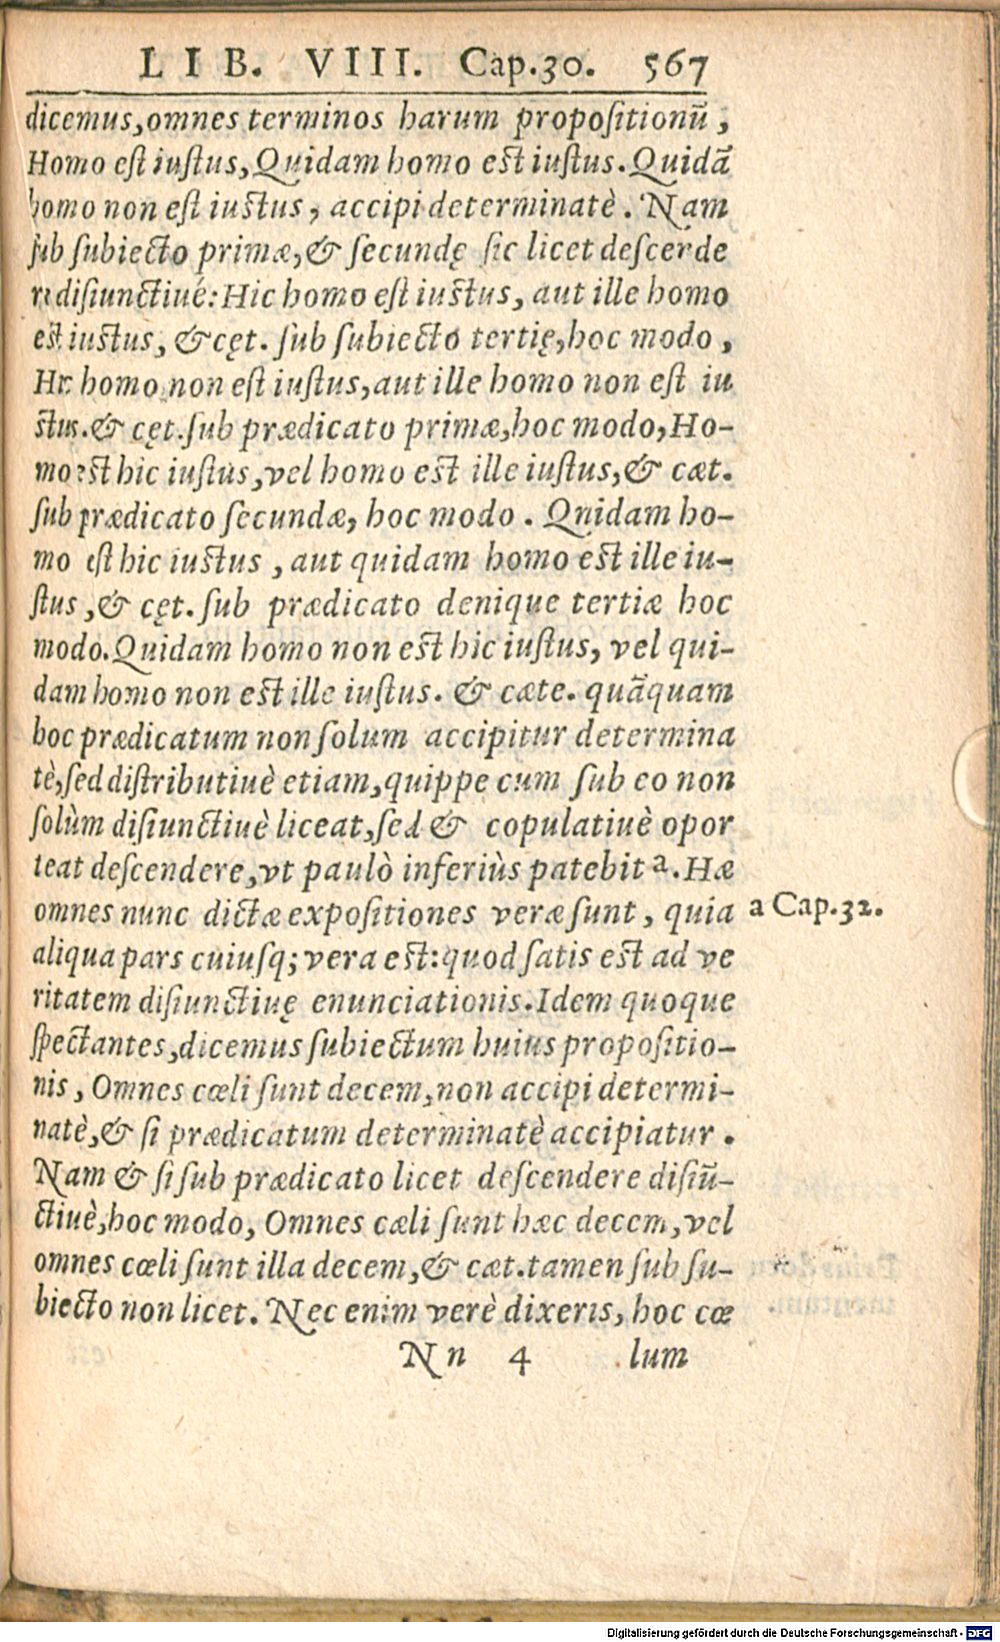 LIB. VIII. Cap.30. 567
dicemus, omnes terminos harum propositionũ,
Homo est iustus, Quidam homo est iustus. Quidã
homo non est iustus, accipi determinatè. Nam
sub subiecto primæ, & secundę sic licet descerde
re disiunctiué: Hic homo est iustus, aut ille homo
est iustus, & cęt. sub subiecto tertię, hoc modo,
Hic homo non est iustus, aut ille homo non est iu
stus. & cęt. sub prædicato primæ, hoc modo, Ho-
mo est hic iustus, vel homo est ille iustus, & cæt.
sub prædicato secundæ, hoc modo. Quidam ho-
mo est hic iustus, aut quidam homo est ille iu-
stus, & cęt. sub prædicato denique tertiæ hoc
modo. Quidam homo non est hic iustus, vel qui-
dam homo non est ille iustus. & cæte. quãquam
hoc prædicatum non solum accipitur determina
tè, sed distributiuè etiam, quippe cum sub eo non
solùm disiunctiuè liceat, sed & copulatiuè opor
teat descendere, vt paulò inferiùs patebit a. Hæ
omnes nunc dictæ expositiones veræ sunt, quia
a Cap.32.
aliqua pars cuiusq; vera est: quod satis est ad ve
ritatem disiunctiuę enunciationis. Idem quoque
spectantes, dicemus subiectum huius propositio-
nis, Omnes cœli sunt decem, non accipi determi-
natè, & si prædicatum determinatè accipiatur.
Nam & si sub prædicato licet descendere disiũ-
ctiuè, hoc modo, Omnes cæli sunt hæc decem, vel
omnes cœli sunt illa decem, & cæt. tamen sub su-
biecto non licet. Nec enim verè dixeris, hoc cœ
Nn 4 lum
Digitalisierung gefördert durch die Deutsche Forschungsgemeinschaft - DFG